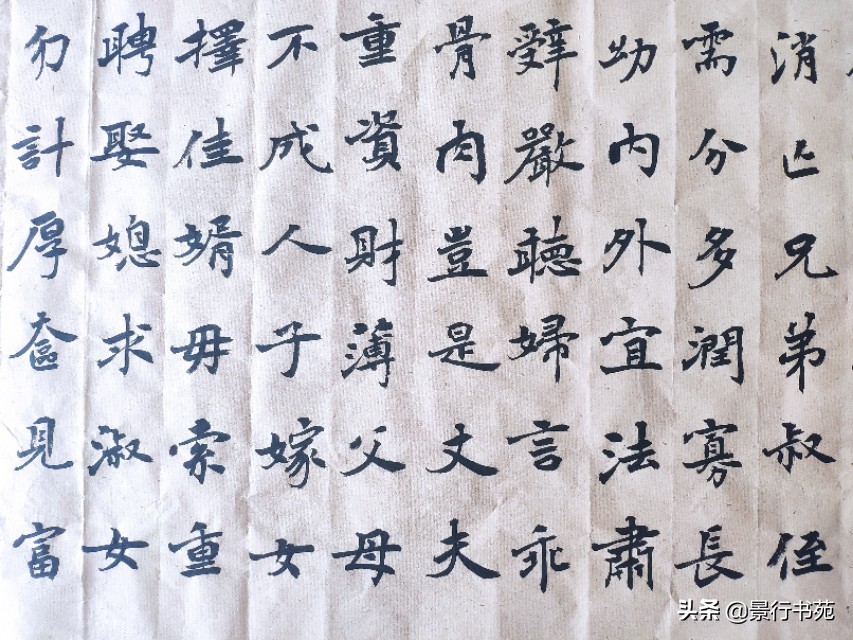 消亡兄弟叔侄
需分多潤寡長
幼內外宜法肅
辤嚴聽婦言乖
骨肉豈是丈夫
重資財薄父母
不成人子嫁女
擇佳婿毋索重
聘娶媳求淑女
勿計厚奩見富
头条 @景行书苑